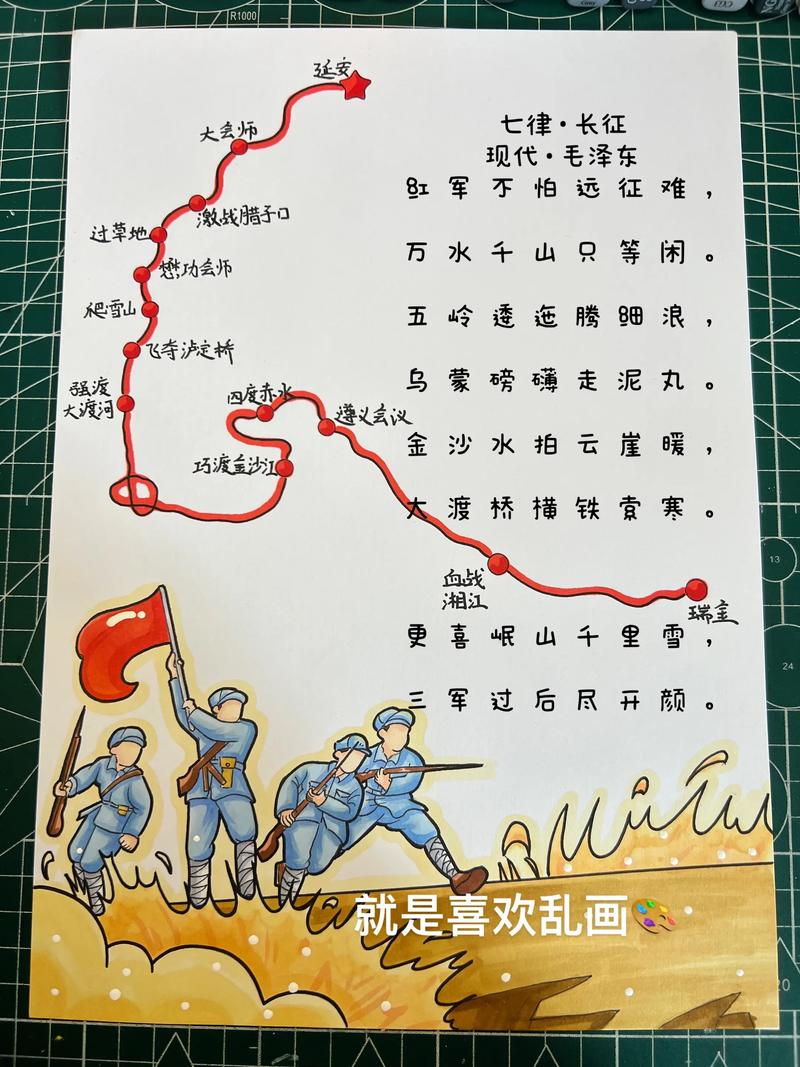 R1000
延安
大会师
激战腊子口
过草地
懋功会师
爬雪山
飞夺泸定桥
强渡
大渡河
四度赤水
遵义会议
巧渡金沙江
血战
湘江
瑞金
七律·长征
现代·毛泽东
红军不怕远征难，
万水千山只等闲。
五岭逶迤腾细浪，
乌蒙磅礴走泥丸。
金沙水拍云崖暖，
大渡桥横铁索寒。
更喜岷山千里雪，
三军过后尽开颜。
就是喜欢乱画
13
24
20